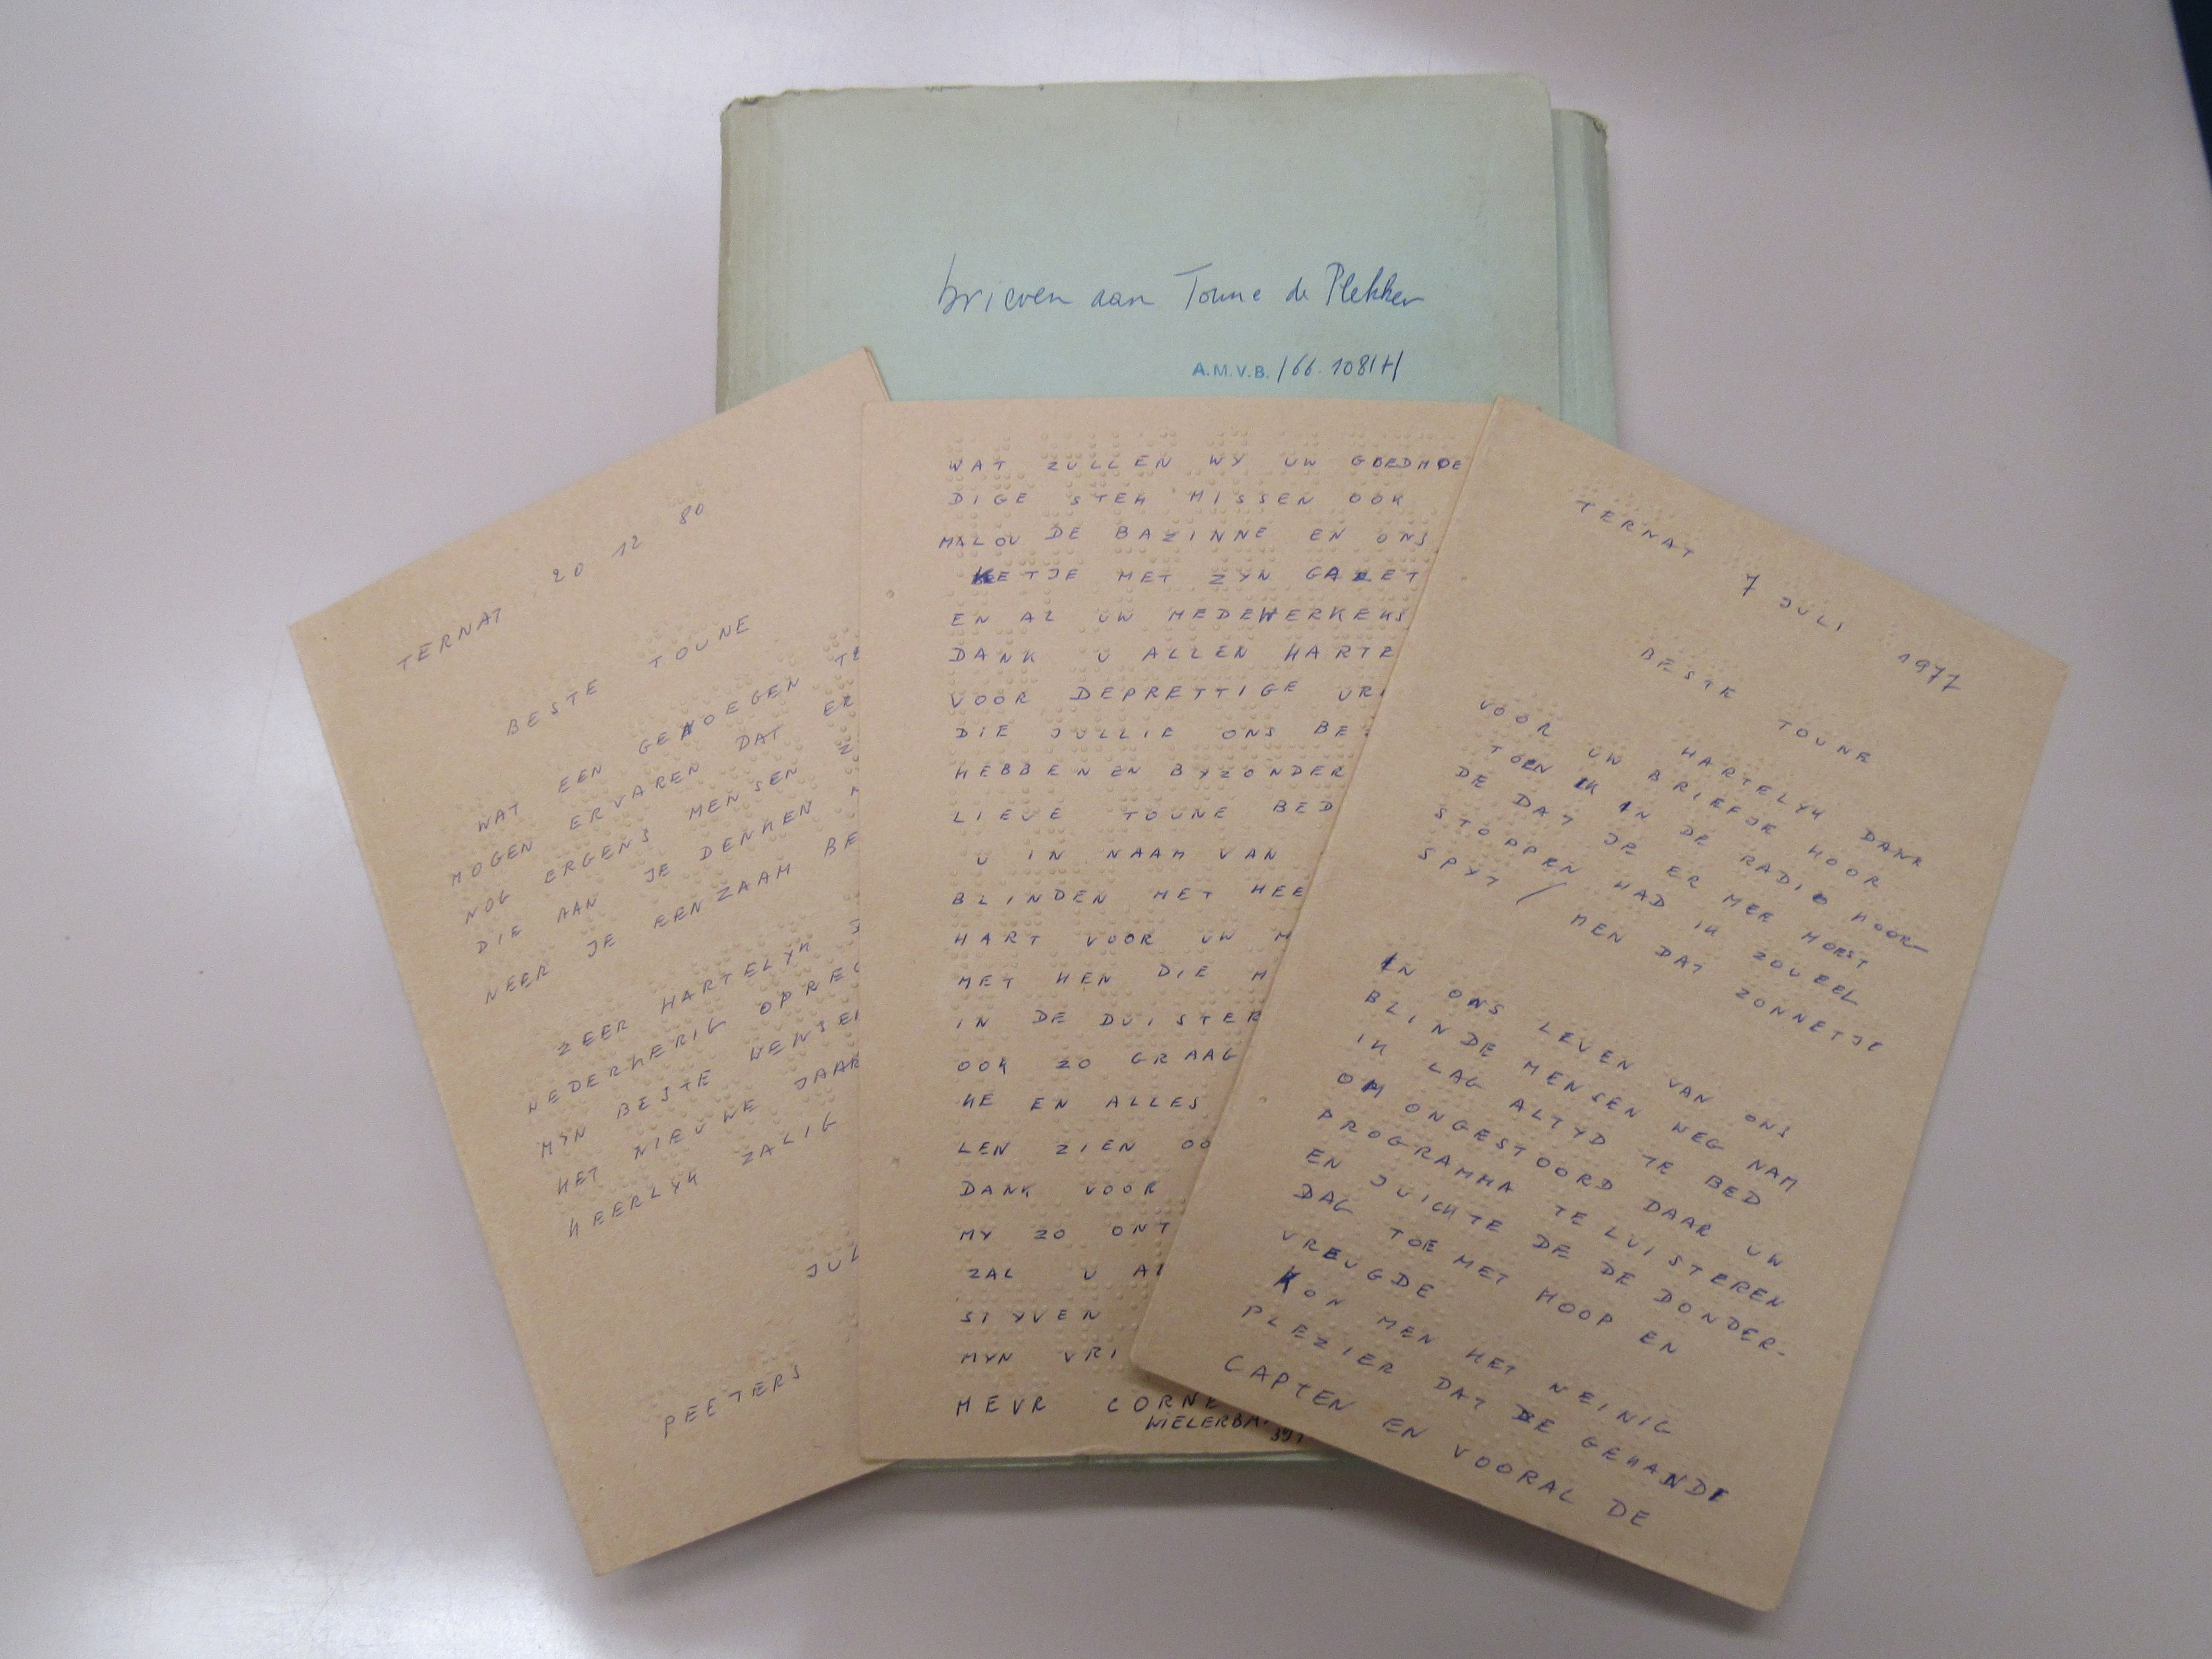 brieven aan Toune de Plekker
A.M.V.B. /66.1081H/
TERNAT 20 12 80
BESTE TOUNE
WAT EEN GENOEGEN TE
MOGEN ERVAREN DAT ER
NOG ERGENS MENSEN
DIE AAN JE DENKEN
NEER JE EENZAAM BE
ZEER HARTELYK
WEDERKERIG OPREC
MYN BESTE WENSEN
HET NIEUWE JAAR
HEERLYK ZALIG
JUL
PEETERS
WAT ZULLEN WY UW GOEDMOE
DIGE STEM MISSEN OOK
MALOU DE BAZINNE EN ONS
KETJE MET ZYN GAZET
EN AL UW MEDEWERKERS
DANK U ALLEN HARTE
VOOR DEPRETTIGE URE
DIE JULLIE ONS BE
HEBBEN EN BYZONDER
LIEVE TOUNE BED
U IN NAAM VAN
BLINDEN MET HEE
HART VOOR UW M
MET HEN DIE M
IN DE DUISTER
OOK ZO GRAAG
HE EN ALLES
LEN ZIEN OO
DANK VOOR
MY ZO ONT
ZAL U AL
STYVEN
MYN VRI
MEVR CORNE
WIELERBA
391
TERNAT 7 JULI 1977
BESTE TOUNE
HARTELYK DANK
VOOR UW BRIEFJE HOOR
TOEN IK IN DE RADIO HOOR-
DE DAT JE ER MEE MOEST
STOPPEN HAD IK ZOVEEL
SPYT / MEN DAT ZONNETJE
IN ONS LEVEN VAN ONS
BLINDE MENSEN WEG NAM
IK LAG ALTYD TE BED
OM ONGESTOORD DAAR UW
PROGRAMMA TE LUISTEREN
EN JUICHTE DE DE DONDER-
DAG TOE MET HOOP EN
VREUGDE
KON MEN HET WEINIG
PLEZIER DAT DE GEHANDI
CAPTEN EN VOORAL DE